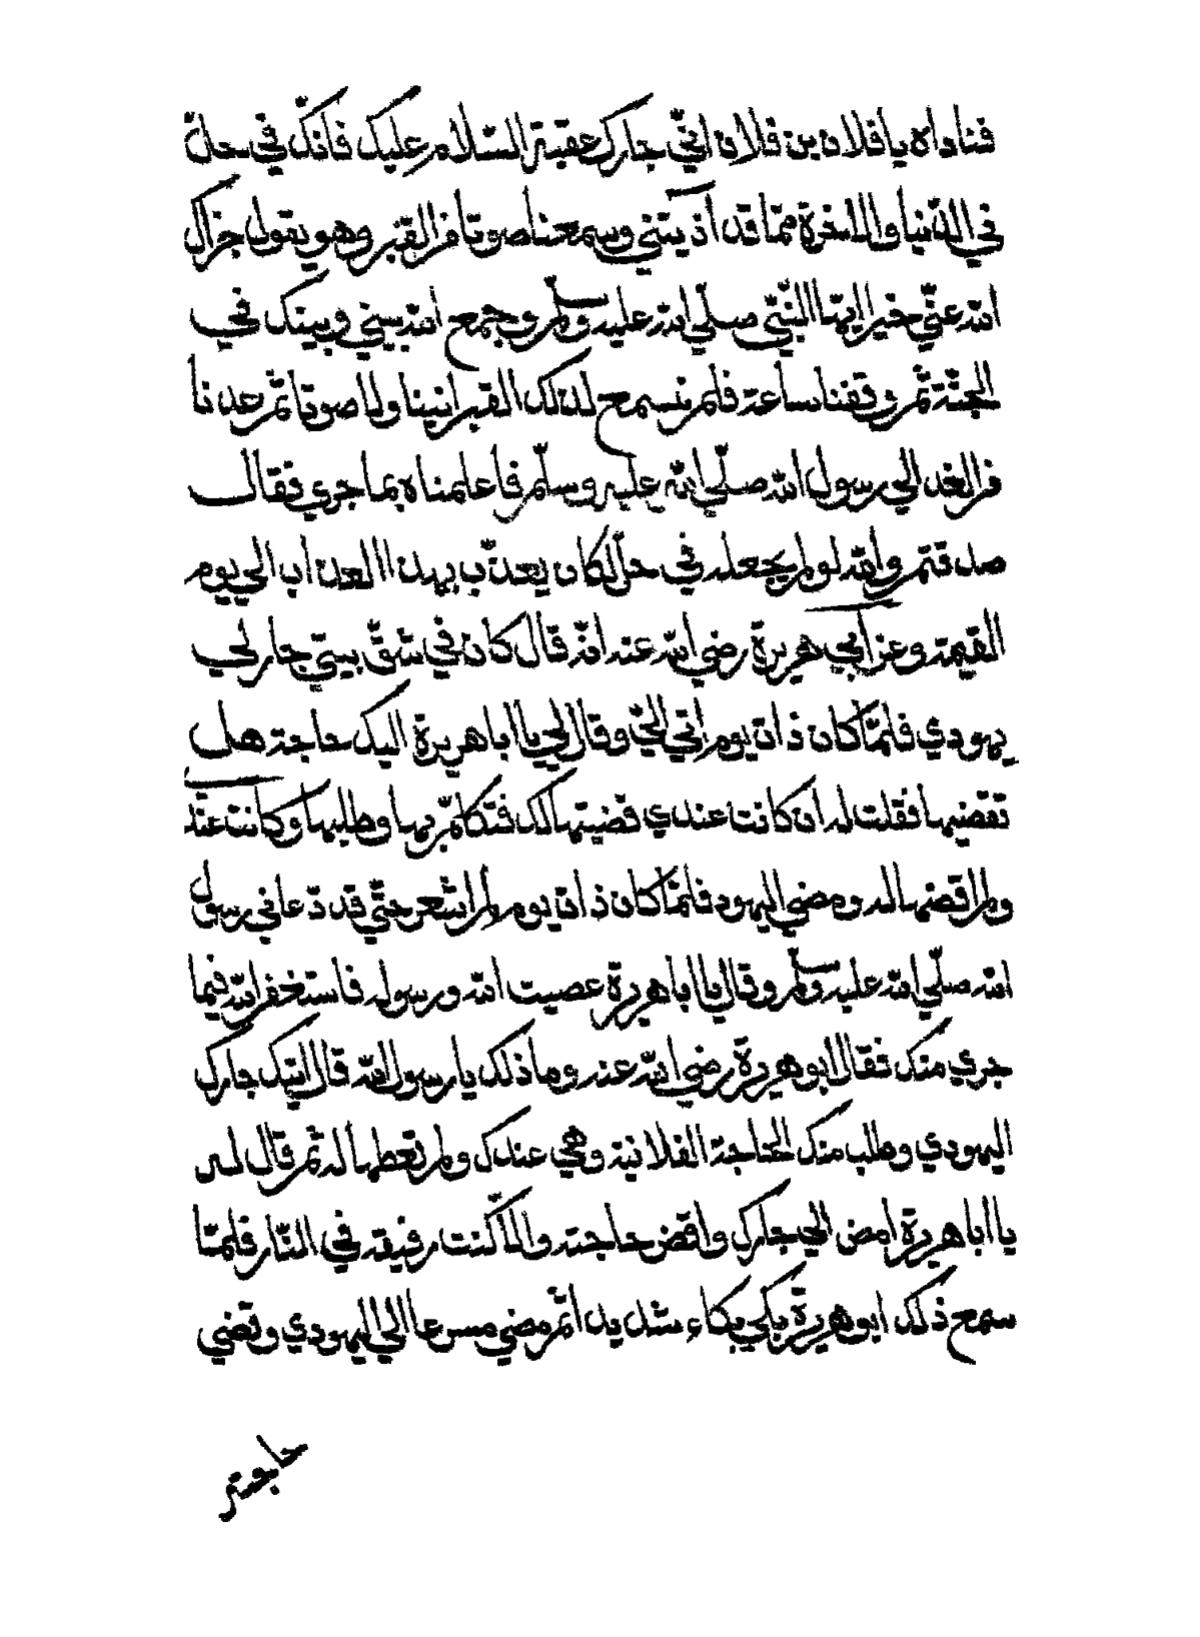 فناداه يا فلان بن فلان انّي جارك عقبة السّلام عليك فانّك في حلّ
في الدّنيا والاخرة ممّا قد آذيتني وسمعنا صوتا من القبر وهو يقول جزاك
الله عنّي خيرا ايها النّبيّ صلّي الله عليه وسلم وجمع الله بيني وبينك في
الجنّة ثمّ وقفنا ساعة فلم نسمع لذلك القبر انينا ولا صوتا ثمّ عدنا
من الغد الي رسول الله صلّي الله عليه وسلّم فاعلمناه بما جري فقال
صدقتم والله لو لم يجعله في حلّ لكان يعذّب بهذا العذاب الي يوم
القيمة وعن ابي هريرة رضي الله عنه انّه قال كان في شقّ بيتي جار لي
يهودي فلمّا كان ذات يوم اتي اليّ وقال لي يا ابا هريرة اليك حاجة هل
تقضيها فقلت له ان كانت عندي قضيتها لك فتكلّم بها وطلبها وكانت عند
ولم اقضها له ومضي اليهود فلمّا كان ذات يوم لم اشعر حتّي قد دعاني رسول
الله صلّي الله عليه وسلم وقال يا ابا هريرة عصيت الله ورسوله فاستغفر الله فيما
جري منك فقال ابو هريرة رضي الله عنه وما ذلك يا رسول الله قال اتيك جارك
اليهودي وطلب منك الحاجة الفلانية وهي عندك ولم تعطها له ثم قال له
يا ابا هريرة امض الي جارك واقض حاجته والّا كنت رفيقه في النّار فلمّا
سمع ذلك ابو هريرة بكي بكاء شديدا ثمّ مضي مسرعا الي اليهودي وقضي
حاجته